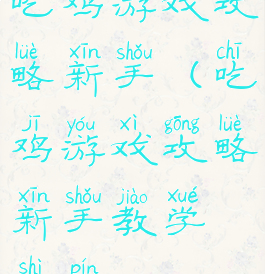 吃鸡游戏攻
lüè xīn shǒu chī
略新手（吃
jī yóu xì gōng lüè
鸡游戏攻略
xīn shǒu jiào xué
新手教学
shì pín